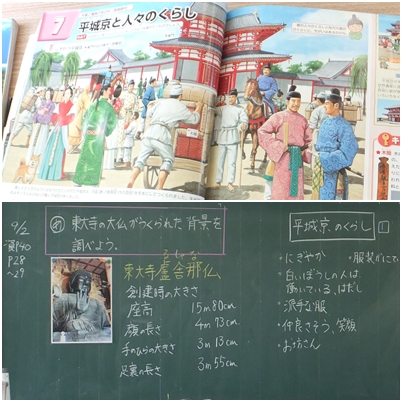 7
平城京と人々のくらし
9/2
資P40
P28
～29
め 東大寺の大仏がつくられた背景を
調べよう。
東大寺盧舎那仏
るしゃな
創建時の大きさ
座高 15m80cm
顔の長さ 4m73cm
手のひらの大きさ 3m13cm
足裏の長さ 3m55cm
平城京のくらし 1
・にぎやか
・服装がにて
・白いぼうしの人は
働いている、はだし
・派手な服
・仲良さそう、笑顔
・お坊さん